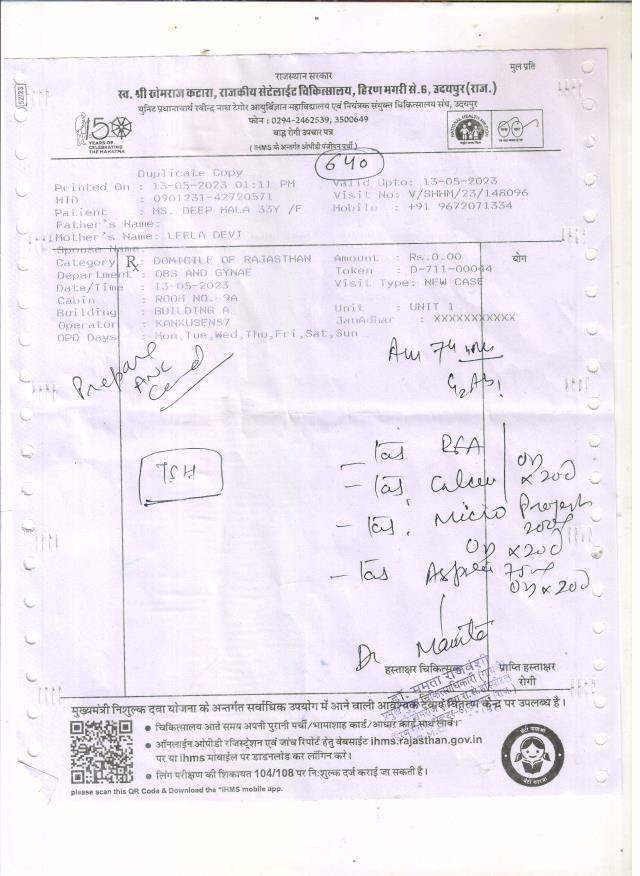 मूल प्रति
राजस्थान सरकार
स्व. श्री खेमराज कटारा, राजकीय सेटेलाईट चिकित्सालय, हिरण मगरी से.6, उदयपुर(राज.)
युनिट प्रधानाचार्य रवीन्द्र नाथ टेगोर आयुर्विज्ञान महाविद्यालय एवं नियंत्रक संयुक्त चिकित्सालय संघ, उदयपुर
फोन : 0294-2462539, 3500649
बाह्य रोगी उपचार पत्र
( IHMS के अन्तर्गत ओपीडी पंजीयन पर्ची )
YEARS OF CELEBRATING THE MAHATMA
640
Duplicate Copy
Printed On : 13-05-2023 01:11 PM Valid Upto: 13-05-2023
HID : 0901231-42720571 Visit No: V/SHHM/23/148096
Patient : MS. DEEP MALA 33Y /F Mobile : +91 9672071334
Father's Name:
Mother's Name: LEELA DEVI
Spouse Name:
Category : DOMICILE OF RAJASTHAN Amount : Rs.0.00 योग
Rx
Department : OBS AND GYNAE Token : D-711-00044
Date/Time : 13-05-2023 Visit Type: NEW CASE
Cabin : ROOM NO. 9A
Building : BUILDING A Unit : UNIT 1
Operator : KANKUSEN57 JanAdhar : XXXXXXXXXXX
OPD Days : Mon,Tue,Wed,Thu,Fri,Sat,Sun
Prepare
ANC
Card
OD
x 20D
OD x 20D
OD x 20D
Dr Mamta
हस्ताक्षर चिकित्सक
प्राप्ति हस्ताक्षर
रोगी
डॉ. ममता राजवंशी
मुख्यमंत्री निशुल्क दवा योजना के अन्तर्गत सर्वाधिक उपयोग में आने वाली आवश्यक दवायें वितरण केन्द्र पर उपलब्ध है।
• चिकित्सालय आते समय अपनी पुरानी पर्ची/भामाशाह कार्ड/आधार कार्ड साथ लावें।
• ऑनलाईन ओपीडी रजिस्ट्रेशन एवं जांच रिपोर्ट हेतु वेबसाईट ihms.rajasthan.gov.in
पर या ihms मोबाईल पर डाउनलोड कर लॉगिन करें।
• लिंग परीक्षण की शिकायत 104/108 पर नि:शुल्क दर्ज कराई जा सकती है।
please scan this QR Code & Download the "iHMS mobile app.